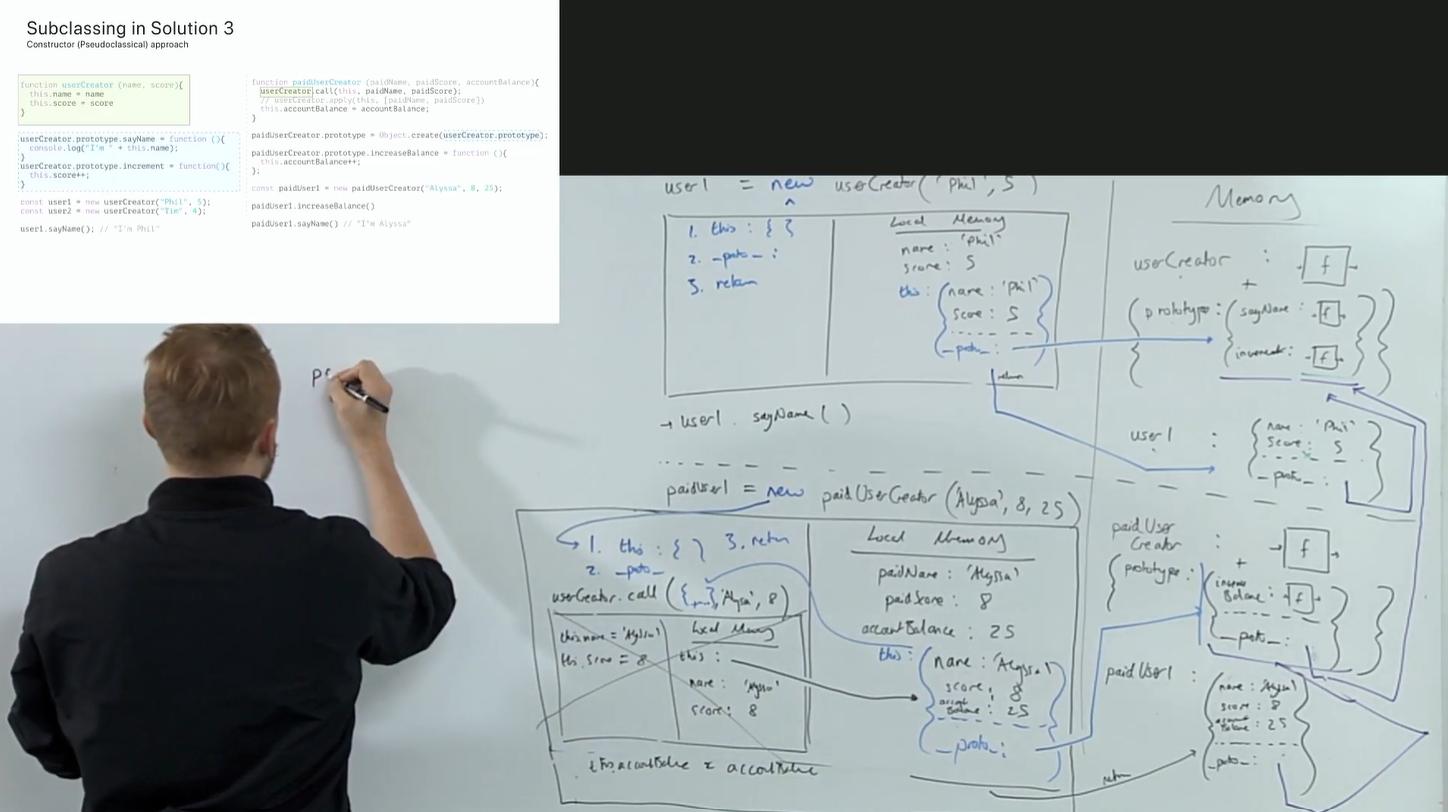 Subclassing in Solution 3
Constructor (Pseudoclassical) approach
function userCreator (name, score){
this.name = name
this.score = score
}
userCreator.prototype.sayName = function (){
console.log("I'm " + this.name);
}
userCreator.prototype.increment = function(){
this.score++;
}
const user1 = new userCreator("Phil", 5);
const user2 = new userCreator("Tim", 4);
user1.sayName(); // "I'm Phil"
function paidUserCreator (paidName, paidScore, accountBalance){
userCreator.call(this, paidName, paidScore);
// userCreator.apply(this, [paidName, paidScore])
this.accountBalance = accountBalance;
}
paidUserCreator.prototype = Object.create(userCreator.prototype);
paidUserCreator.prototype.increaseBalance = function (){
this.accountBalance++;
};
const paidUser1 = new paidUserCreator("Alyssa", 8, 25);
paidUser1.increaseBalance()
paidUser1.sayName() // "I'm Alyssa"
user1 = new userCreator('Phil', 5)
1. this : { }
2. _proto_ :
3. return
Local Memory
name : 'Phil'
score : 5
this : { name : 'Phil'
score : 5
_proto_ : }
return
→ user1 . sayName ( )
paidUser1 = new paidUserCreator ('Alyssa', 8, 25)
1. this : { } 3. return
2. _proto_
userCreator.call ({...}, 'Alyssa', 8)
this.name = 'Alyssa'
this.score = 8
Local Memory
this :
name : 'Alyssa'
score : 8
Local Memory
paidName : 'Alyssa'
paidScore : 8
accountBalance : 25
this : { name : 'Alyssa'
score : 8
Balance : 25
_proto_ : }
return
Memory
userCreator : f
+
{ prototype : { sayName : f
increment : f } }
user1 : { name : 'Phil'
score : 5
_proto_ : }
paidUser
Creator : f
+
{ prototype : { increase
Balance : f
_proto_ : } }
paidUser1 : { name : 'Alyssa'
score : 8
Balance : 25
_proto_ : }